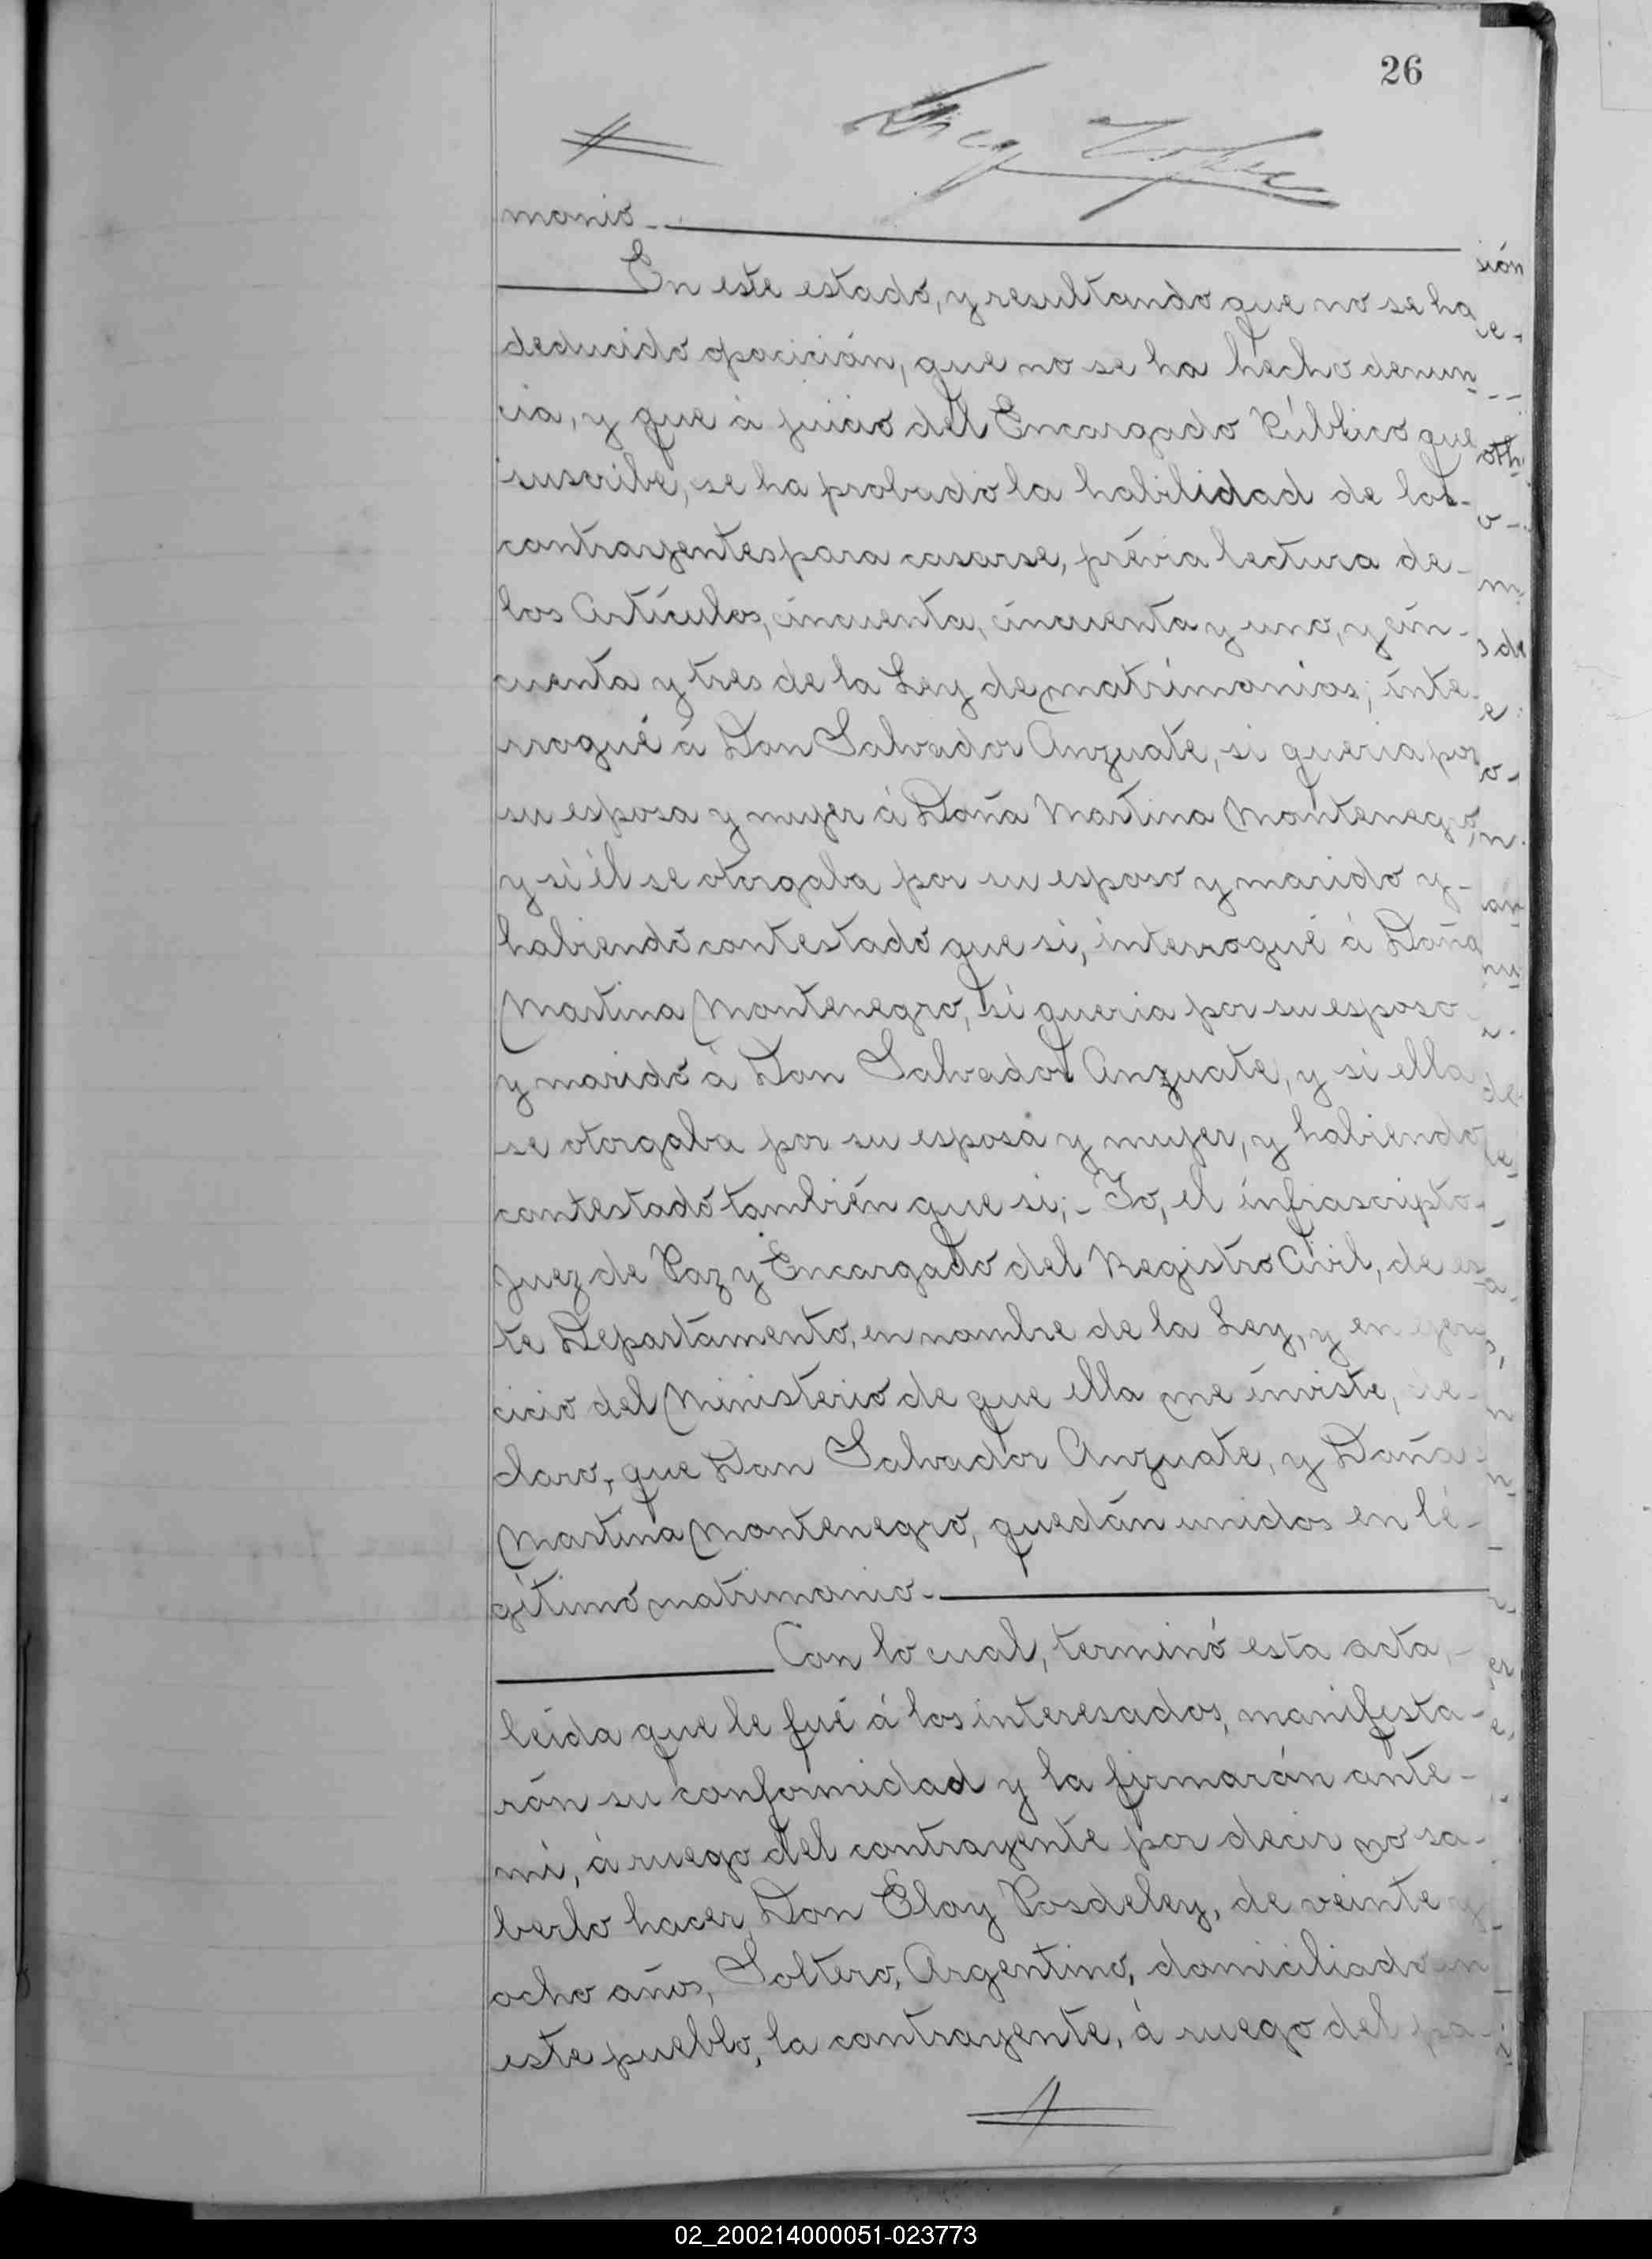 26
monio
En este estado, y resultando que no se ha
deducido oposición, que no se ha hecho denun
cia, y que á juicio del Encargado Público que
suscribe, se ha probado la habilidad de los
contrayentes para casarse, prévia lectura de
los Artículos, cincuenta, cincuenta y uno, y cin-
cuenta y tres de la Ley de matrimonios; inte-
rrogué á Don Salvador Anzuate, si queria por
su esposa y mujer á Doña Martina Montenegro,
y si él se otorgaba por su esposo y marido y-
habiendo contestado que si, interrogué á Doña
Martina Montenegro, si queria por su esposo
y marido á Don Salvador Anzuate, y si ella
se otorgaba por su esposa y mujer, y habiendo
contestado también que si;- Yo, el infrascripto-
Juez de Paz y Encargado del Registro Civil, de es
te Departamento, en nombre de la Ley, y en ejer
cicio del Ministerio de que ella me inviste, de-
claro, que Don Salvador Anzuate, y Doña
Martina Montenegro, quedán unidos en lé-
gitimo matrimonio-
Con lo cual, terminó esta acta,-
leida que le fué á los interesados, manifesta-
rón su conformidad y la firmarán ante-
mi, á ruego del contrayente por decir no sa-
berlo hacer, Don Eloy Posdeley, de veinte y
ocho años, Soltero, Argentino, domiciliado en
este pueblo, la contrayente, á ruego del pa-
02_200214000051-023773